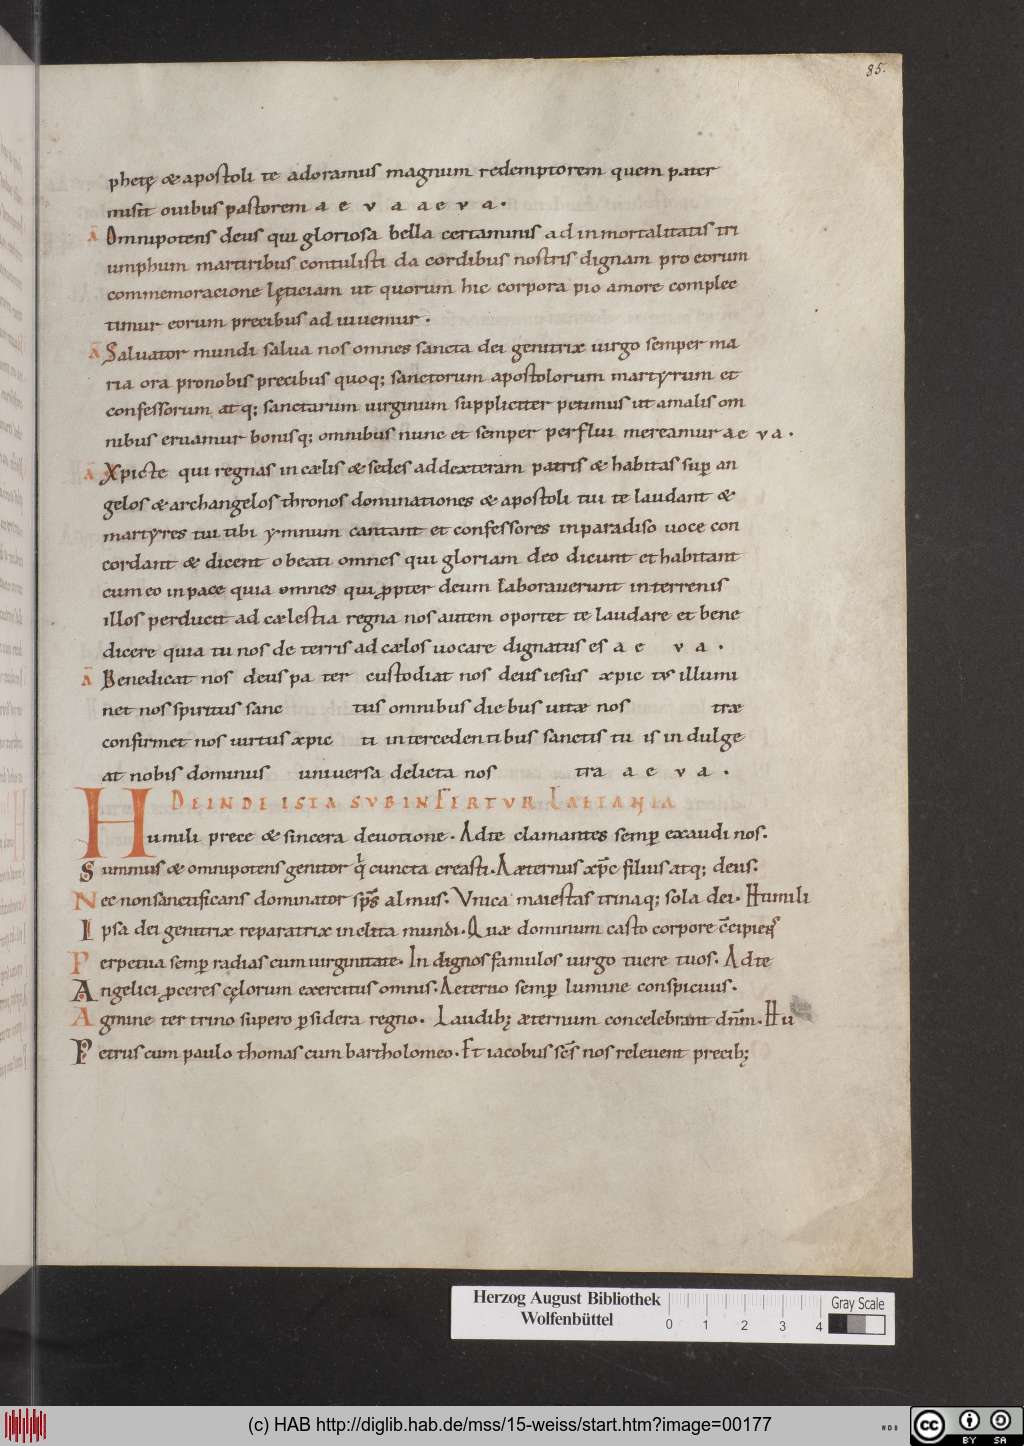 85.
phetę & apostoli te adoramus magnum redemptorem quem pater
misit ouibus pastorem a e v a a e v a .
ā Omnipotens deus qui gloriosa bella certaminis ad inmortalitatis tri
umphum martiribus contulisti da cordibus nostris dignam pro eorum
commemoracione lęticiam ut quorum hic corpora pio amore complec
timur eorum precibus ad iuuemur .
ā Saluator mundi salua nos omnes sancta dei genitrix uirgo semper ma
ria ora pronobis precibus quoq; sanctorum apostolorum martyrum et
confessorum atq; sanctarum uirginum suppliciter petimus ut amalis om
nibus eruamur bonisq; omnibus nunc et semper perflui mereamur a e v a .
ā Xpicte qui regnas in cælis & sedes ad dexteram patris & habitas sup̄ an
gelos & archangelos thronos dominationes & apostoli tui te laudant &
martyres tui tibi ymnum cantant et confessores inparadiso uoce con
cordant & dicent o beati omnes qui gloriam deo dicunt et habitant
cum eo in pace quia omnes qui ꝓpter deum laborauerunt in terrenis
illos perducit ad cælestia regna nos autem oportet te laudare et bene
dicere quia tu nos de terris ad cælos uocare dignatus es a e v a .
ā Benedicat nos deus pa ter custodiat nos deus iesus xpic tvs illumi
net nos spiritus sanc tus omnibus diebus uitæ nos træ
confirmet nos uirtus xpic ti intercedentibus sanctis tu is in dulge
at nobis dominus uniuersa delicta nos tra a e v a .
DEINDE ISTA SVBINFERTVR LAETANIA
Humili prece & sincera deuotione . Adte clamantes semp̄ exaudi nos .
Summus & omnipotens genitor q̇ cuncta creasti . Aæternus xp̄c filius atq; deus .
Nec non sanctificans dominator sp̄s almus . Vnica maiestas trinaq; sola dei . Humili
Ipsa dei genitrix reparatrix inclita mundi . Quæ dominum casto corpore c̄cipiens
Perpetua semp̄ radias cum uirginitate . In dignos famulos uirgo tuere tuos . Adte
Angelici ꝓceres cęlorum exercitus omnis . Aeterno semp̄ lumine conspicuus .
Agmine ter trino supero p̄sidera regno . Laudibꝫ æternum concelebrant dn̄m . Hu
Petrus cum paulo thomas cum bartholomeo . Et iacobus sc̄s nos releuent precibꝫ
Herzog August Bibliothek
Wolfenbüttel
0 1 2 3 4
Gray Scale
(c) HAB http://diglib.hab.de/mss/15-weiss/start.htm?image=00177
cc BY SA